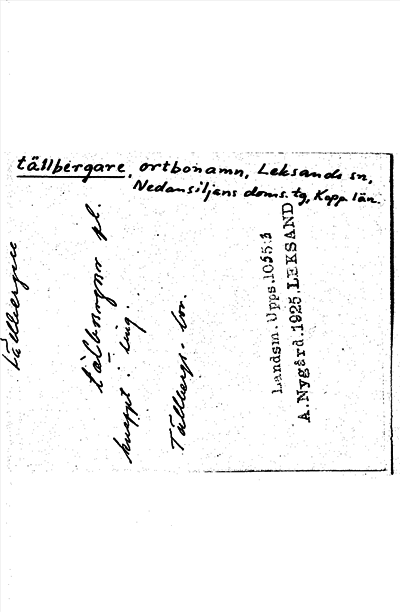 tällbergare, ortbonamn, Leksands sn,
Nedansiljans doms. tg, Kopp. län.
tällbergare
pl.
knappt i sing.
Tällbergs-bor.
Landsm. Upps.1055:3
A.Nygård.1925.LEKSAND